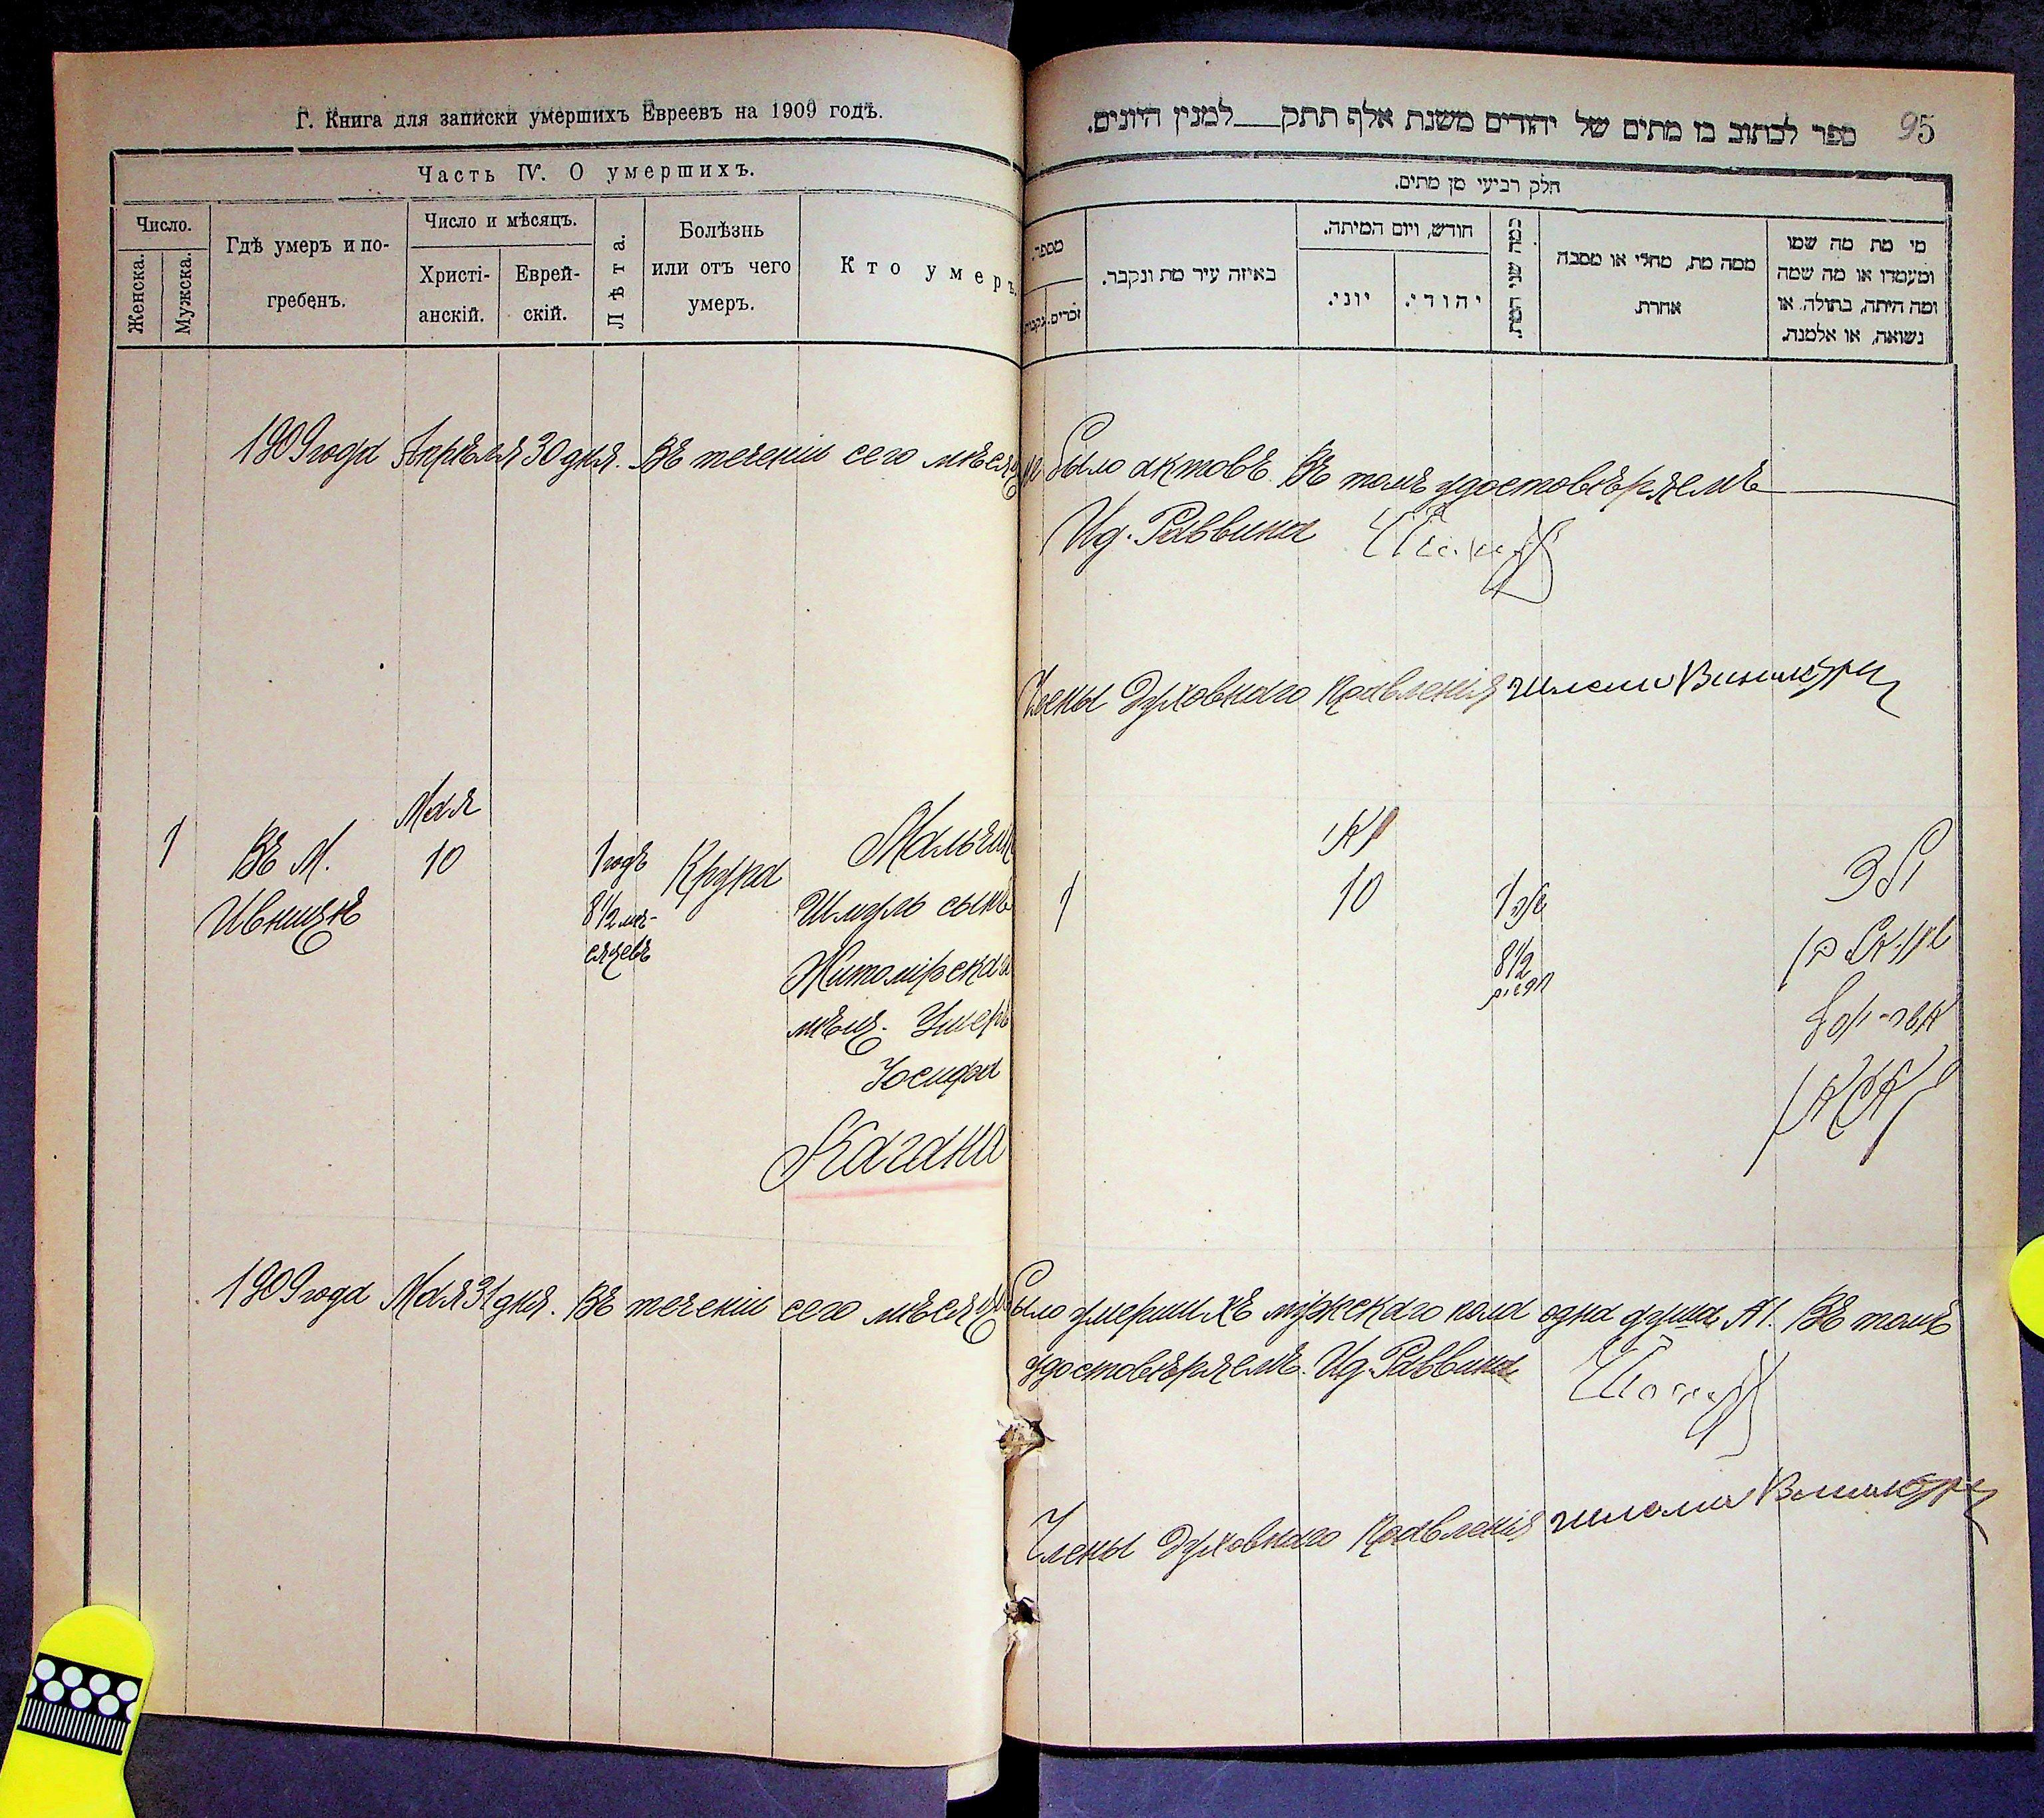 Г. Книга для записки умершихъ Евреевъ на 1909 годъ.
Часть IV. О умершихъ.
Число.
Женска.
Мужска.
Гдѣ умеръ и по-
гребенъ.
Число и мѣсяцъ.
Христі-
анскій.
Еврей-
скій.
Лѣта.
Болѣзнь
или отъ чего
умеръ.
Кто умеръ.
95
ספר לכתוב בו מתים של יהודים משנת אלף תתק למנין היונים.
חלק רביעי מן מתים.
מספר.
זכרים.
נקבות.
באיזה עיר מת ונקבר.
חודש, ויום המיתה.
יוני.
יהודי.
כמה שני המת.
ממה מת, מחלי או מסבה
אחרת.
מי מת מה שמו
ומעמדו או מה שמה
ומה היתה, בתולה, או
נשואה, או אלמנה.
1909 года Апрѣля 30 дня. Въ теченіи сего мѣсяца не было актовъ. Въ томъ удостовѣряемъ
Ид. Раввина
Члены Духовнаго Правленія
Мая
1 Въ М. 10 1 годъ Крупа Мальчик
Ивницѣ 8 1/2 мѣ- Шмуль сынъ
сяцевъ Житомірскаго
мѣщ. Ушеръ
Іосифа
Кагана
מאי
1 10 1
8 1/2
1909 года Мая 31 дня. Въ теченіи сего мѣсяца было умершихъ мужскаго пола одна душа №1. Въ томъ
удостовѣряемъ. Ид. Раввина
Члены Духовнаго Правленія